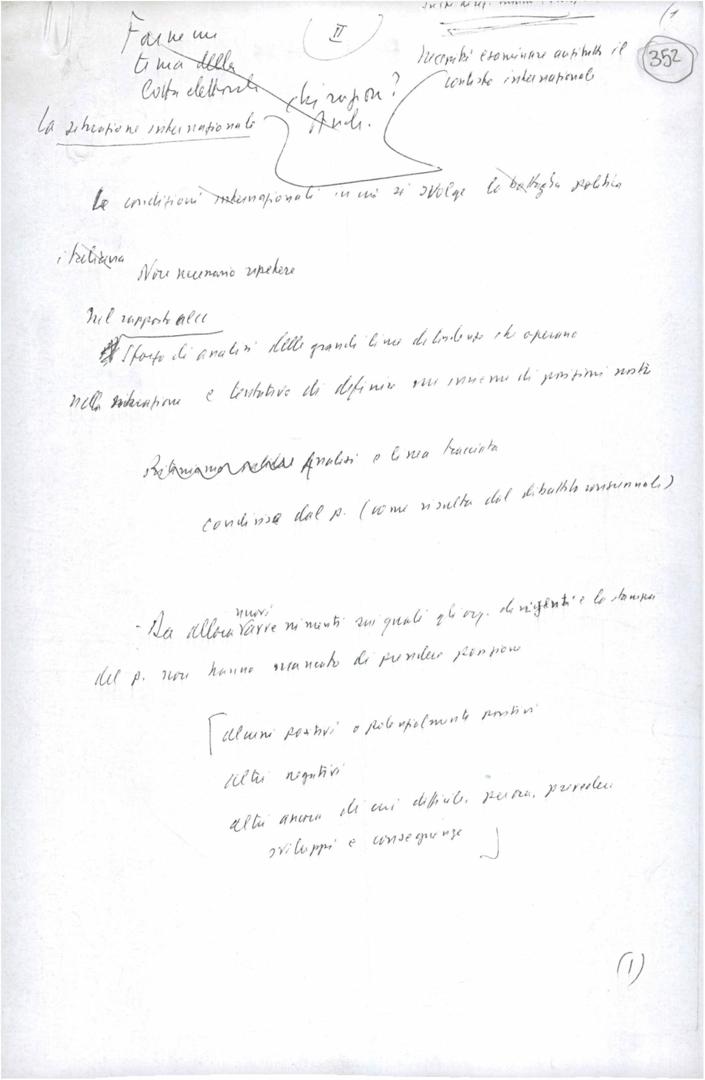 (1
II
352
Farne un
tema della
lotta elettorale
chi ragion?
Necessità esaminare anzitutto il
contesto internazionale
La situazione internazionale
Le condizioni internazionali in cui si svolge la battaglia politica
italiana
Non necessario ripetere
Nel rapporto al cc
Sforzo di analisi delle grandi linee di tendenza che operano
nella situazione e tentativo di definire un insieme di posizioni nostre
Analisi e linea tracciata
condivise dal p. (come risulta dal dibattito congressuale)
- Da allora nuovi avvenimenti sui quali gli org. dirigenti e la stampa
del p. non hanno mancato di prendere posizione
[alcuni positivi o potenzialmente positivi
altri negativi
altri ancora di cui difficile, per ora, prevedere
sviluppi e conseguenze]
(1)